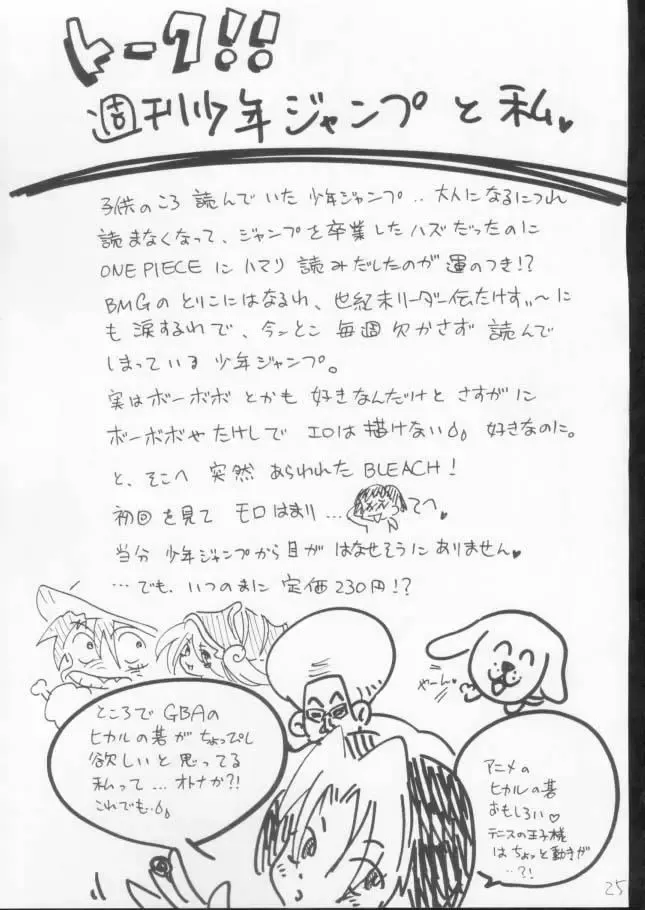 トーク!!
週刊少年ジャンプと私♥
子供のころ 読んでいた 少年ジャンプ‥大人になるにつれ
読まなくなって、ジャンプを卒業したハズだったのに
ONE PIECEにハマリ 読みだしたのが 運のつき!?
BMGのとりこにはなるわ、世紀末リーダー伝たけすぃ〜に
も 涙するわで、今んとこ 毎週 欠かさず 読んで
しまっている 少年ジャンプ。
実はボーボボとかも 好きなんだけど さすがに
ボーボボやたけしで エロは描けない 好きなのに。
と、そこへ 突然 あらわれた BLEACH!
初回を見て モロはまり… てへ♥
当分 少年ジャンプから目が はなせそうにありません♥
…でも、いつのまに 定価230円!?
やーん
ところで GBAの
ヒカルの碁が ちょっぴし
欲しいと思ってる
私って…オトナか?!
これでも…
アニメの
ヒカルの碁
おもしろい♡
テニスの王子様
はちょっと動きが
…?!
25